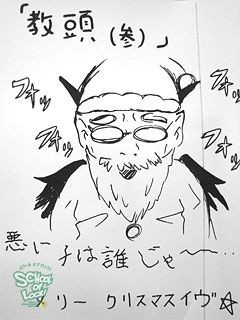 「教頭(参)」
フォッ
フォッ
フォッ
フォッ
悪い子は誰じゃ〜〜..
SCHOOL OF LOCK!
リー クリスマスイヴ☆